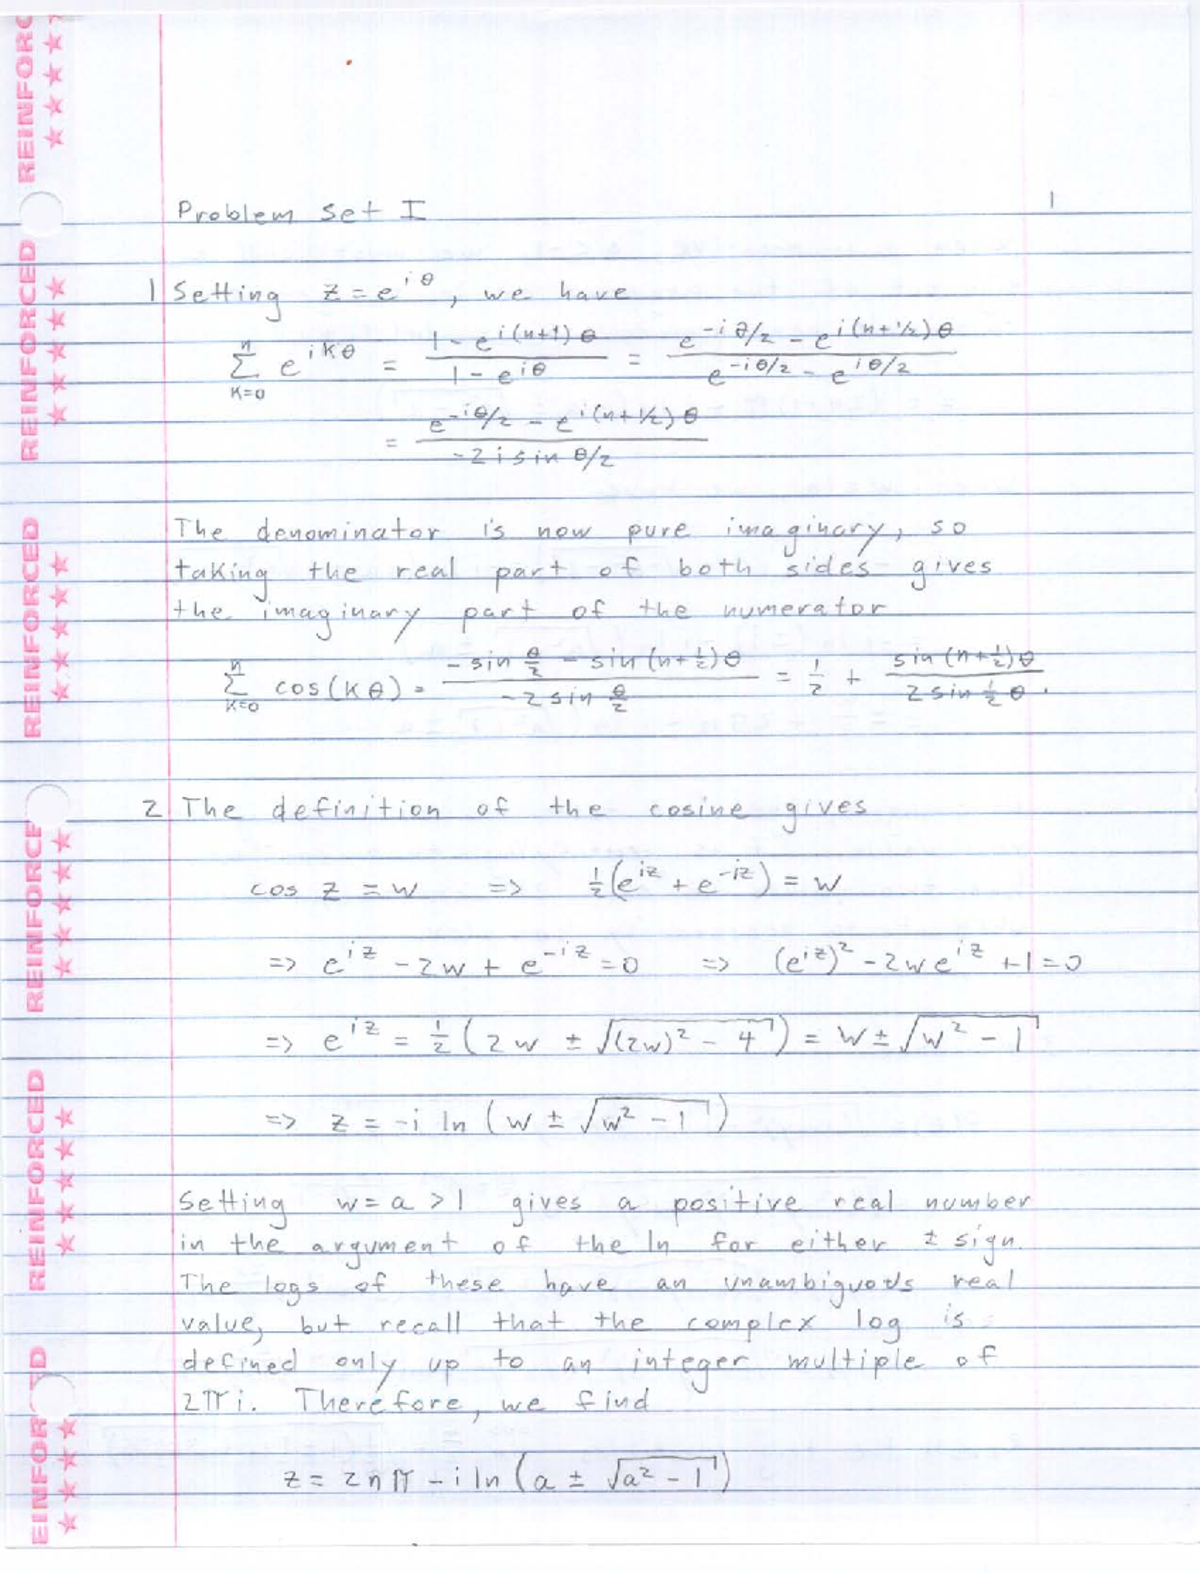 Problem Set I
1
1 Setting z = e^{iθ}, we have
\sum_{k=0}^{n} e^{ikθ} = \frac{1 - e^{i(n+1)θ}}{1 - e^{iθ}} = \frac{e^{-iθ/2} - e^{i(n+1/2)θ}}{e^{-iθ/2} - e^{iθ/2}}
= \frac{e^{-iθ/2} - e^{i(n+1/2)θ}}{-2i sin θ/2}
The denominator is now pure imaginary, so
taking the real part of both sides gives
the imaginary part of the numerator
\sum_{k=0}^{n} cos(kθ) = \frac{-sin \frac{θ}{2} - sin(n+\frac{1}{2})θ}{-2 sin \frac{θ}{2}} = \frac{1}{2} + \frac{sin(n+\frac{1}{2})θ}{2 sin \frac{1}{2}θ}.
2 The definition of the cosine gives
cos z = w => \frac{1}{2}(e^{iz} + e^{-iz}) = w
=> e^{iz} - 2w + e^{-iz} = 0 => (e^{iz})^2 - 2we^{iz} + 1 = 0
=> e^{iz} = \frac{1}{2}(2w ± \sqrt{(2w)^2 - 4}) = w ± \sqrt{w^2 - 1}
=> z = -i ln(w ± \sqrt{w^2 - 1})
Setting w = a > 1 gives a positive real number
in the argument of the ln for either ± sign.
The logs of these have an unambiguous real
value, but recall that the complex log is
defined only up to an integer multiple of
2πi. Therefore, we find
z = 2nπ - i ln(a ± \sqrt{a^2 - 1})
REINFORC
REINFORCED
REINFORCED
REINFORCE
REINFORCED
EINFOR ED